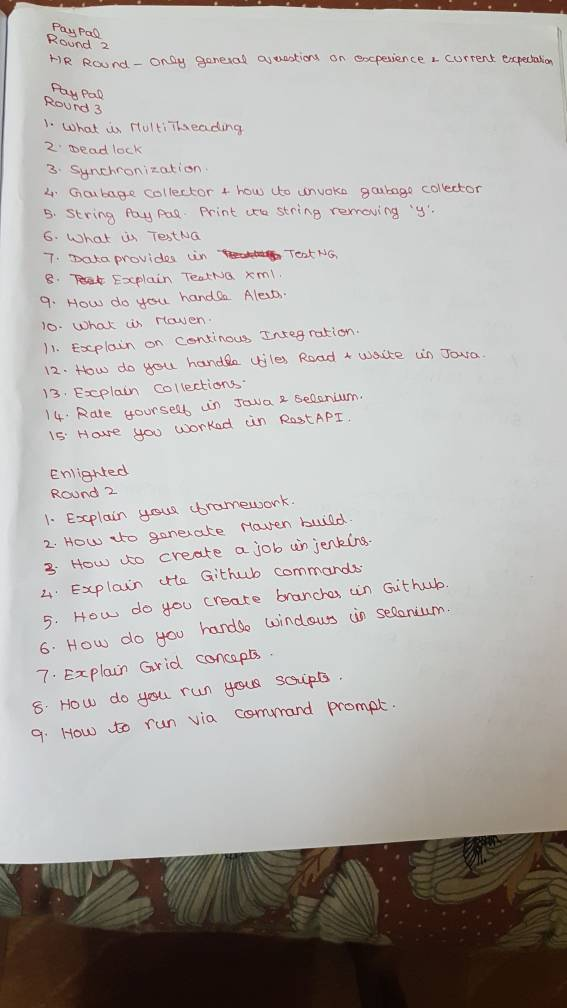 PayPal
Round 2
HR Round - Only general questions on experience & current expectation
PayPal
Round 3
1. What is MultiThreading
2. Dead lock
3. Synchronization.
4. Garbage collector + how to invoke garbage collector
5. String PayPal. Print the string removing 'y'.
6. What is TestNG
7. Dataprovides in TestNG
8. Explain TestNG xml.
9. How do you handle Alerts.
10. What is Maven.
11. Explain on Continous Integration.
12. How do you handle files Read + write in Java.
13. Explain Collections.
14. Rate yourself in Java & selenium.
15. Have you worked in RestAPI.
Enlighted
Round 2
1. Explain your framework.
2. How to generate Maven build.
3. How to create a job in jenkins.
4. Explain the Github commands.
5. How do you create branches in Github.
6. How do you handle windows in selenium.
7. Explain Grid concepts.
8. How do you run your scripts.
9. How to run via command prompt.